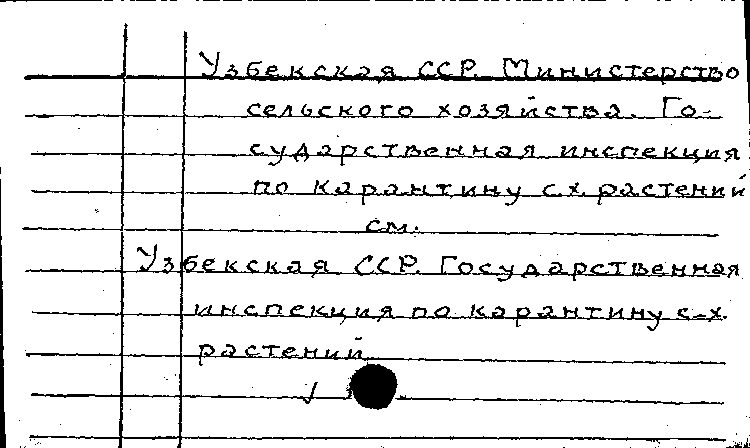 Узбекская ССР. Министерство
сельского хозяйства. Го-
сударственная инспекция
по карантину с.х. растений
см.
Узбекская ССР. Государственная
инспекция по карантину с-х.
растений